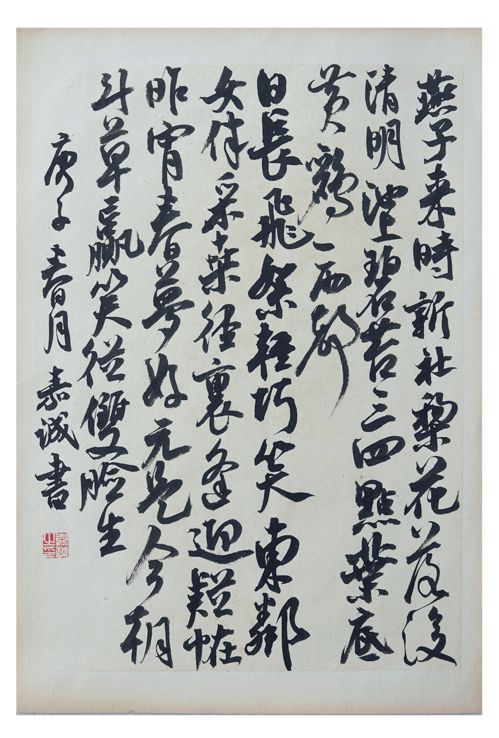 燕子来時新社棃花落後
清明池上碧苔三四點葉底
黄鸝一兩聲
日長飛絮輕巧笑東鄰
女伴采桒徑裏逢迎疑恠
昨宵春夢好元是今朝
斗草贏笑從雙臉生
庚子春月嘉诚書